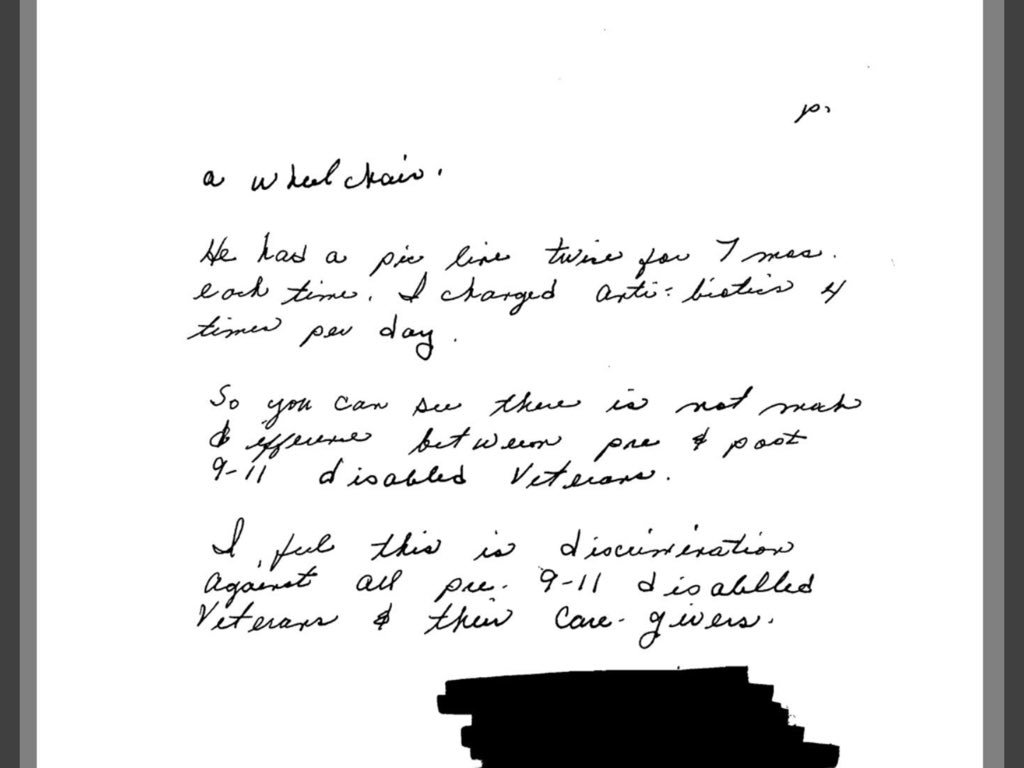 p.
a wheelchair.
He had a pic line twice for 7 mos.
each time. I changed anti-biotics 4
times per day.
So you can see there is not much
difference between pre & post
9-11 disabled Veterans.
I feel this is discrimination
against all pre. 9-11 disablled
Veterans & their Care-givers.